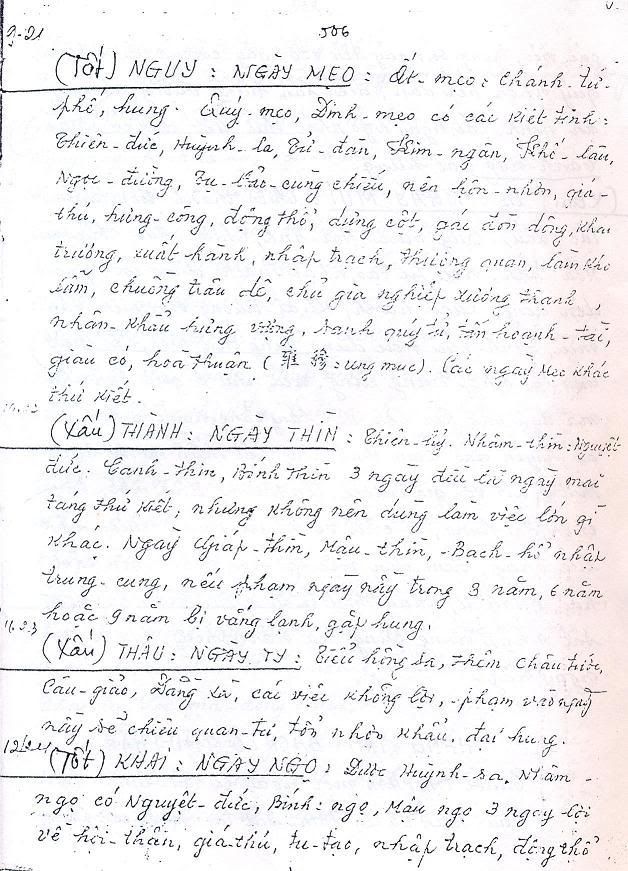 506
(Tốt) NGUY : NGÀY MẸO : Ất-mẹo : Chánh-tứ-
phế, hung. Quý-mẹo, Đinh-mẹo có cát kiết tinh :
Thiên-đức, Huỳnh-la, Tử-đàn, Kim-ngân, Khố-lâu,
Ngọc-đường, Tu-bảo-cung chiếu, nên hôn-nhơn, giá-
thú, hưng-công, động thổ, dựng cột, gác đòn dông, khai
trương, xuất hành, nhập trạch, thượng quan, làm kho
lẫm, chuồng trâu dê, chủ gia nghiệp xương thạnh,
nhân-khẩu hưng vượng, sanh quý tử, tấn hoạnh-tài,
giàu có, hoà thuận ( : ung mục). Các ngày Mẹo khác
thứ kiết.
(Xấu) THÀNH : NGÀY THÌN : Thiên-hỷ. Nhâm-thìn : Nguyệt
đức. Canh-thìn, Bính thìn 3 ngày đều là ngày mai
táng thứ kiết, nhưng không nên dùng làm việc lớn gì
khác. Ngày Giáp-thìn, Mậu-thìn, -Bạch-hổ nhập
trung-cung, nếu phạm ngày nầy trong 3 năm, 6 năm
hoặc 9 năm bị vắng lạnh, gặp hung.
(Xấu) THÂU : NGÀY TỴ : Tiểu hồng sa, thêm Châu tước,
Câu-giảo, Đằng xà, các việc không lợi, phạm vào ngày
nầy sẽ chiêu quan-tư, tổn nhơn khẩu, đại hung.
(Tốt) KHAI : NGÀY NGỌ : Được Huỳnh-sa. Nhâm-
ngọ có Nguyệt-đức, Bính : ngọ, Mậu ngọ 3 ngày lợi
về hội-thân, giá-thú, tu-tạo, nhập trạch, động thổ